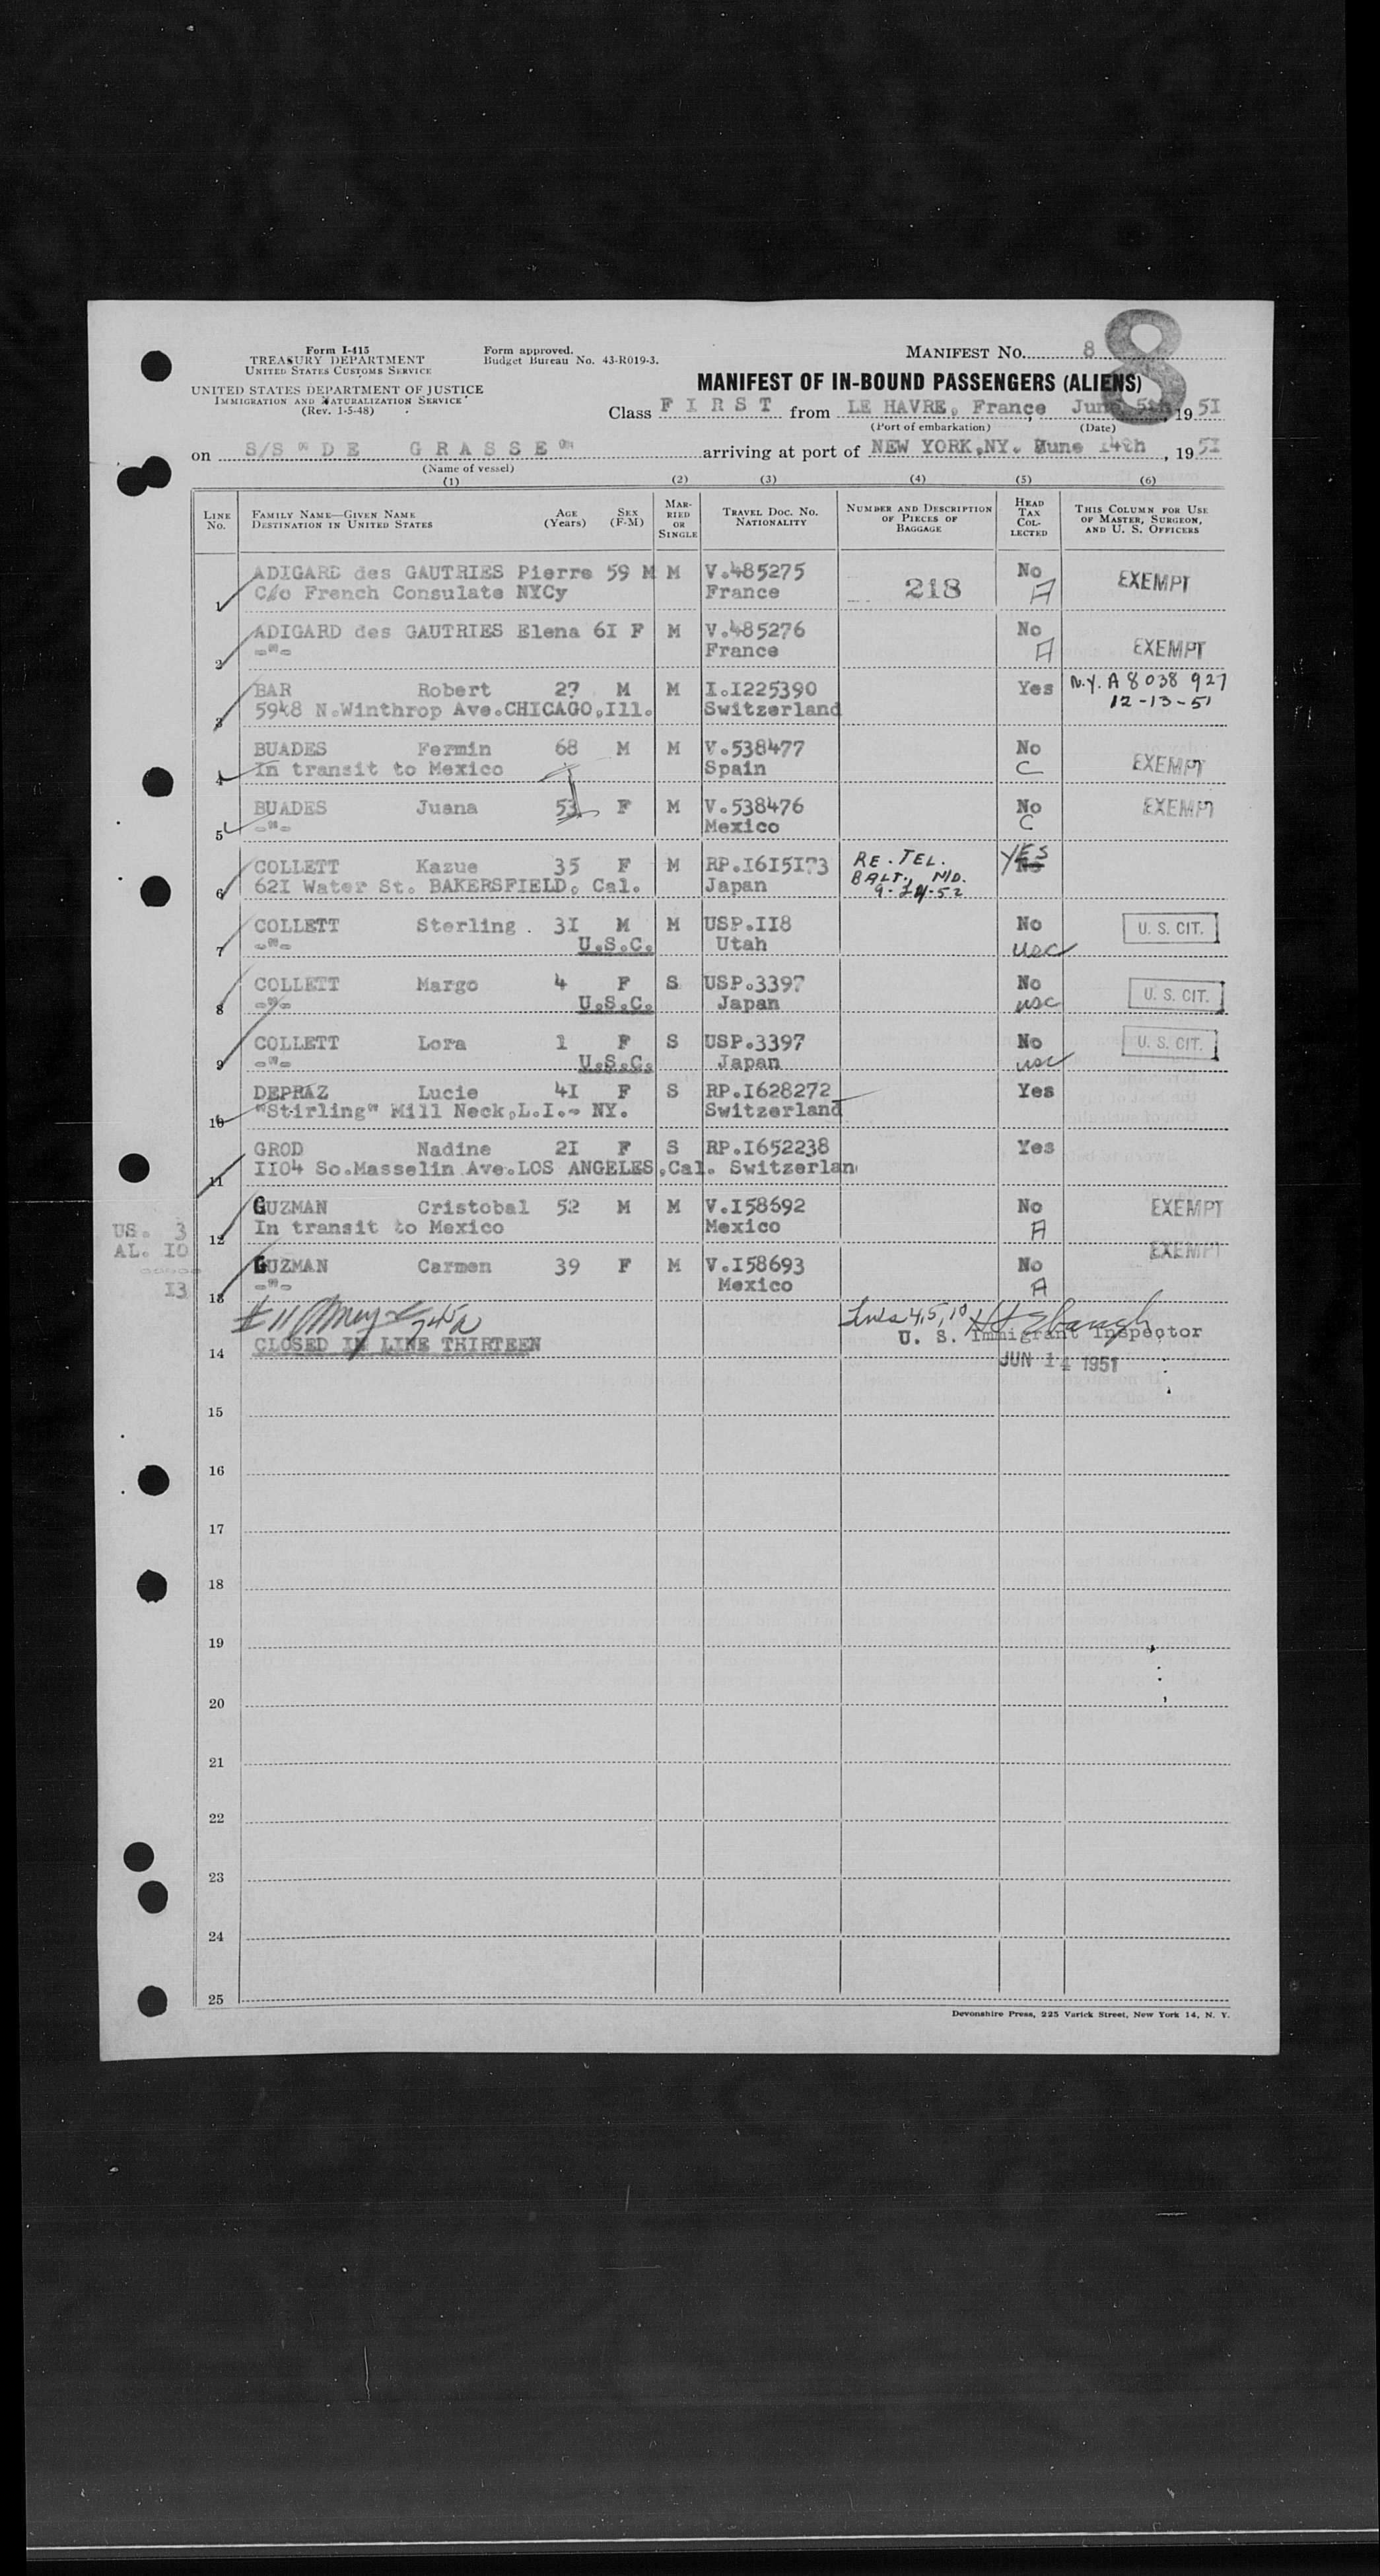 Form I-415
TREASURY DEPARTMENT
UNITED STATES CUSTOMS SERVICE
UNITED STATES DEPARTMENT OF JUSTICE
IMMIGRATION AND NATURALIZATION SERVICE
(Rev. 1-5-48)
Form approved.
Budget Bureau No. 43-R019-3.
MANIFEST NO. 8
8
MANIFEST OF IN-BOUND PASSENGERS (ALIENS)
Class F I R S T from LE HAVRE, France, June 5th, 1951
(Port of embarkation) (Date)
on S/S "D E G R A S S E" arriving at port of NEW YORK,NY. June 14th, 1951
(Name of vessel)
(1) (2) (3) (4) (5) (6)
LINE No. FAMILY NAME—GIVEN NAME DESTINATION IN UNITED STATES AGE (Years) SEX (F-M) MARRIED OR SINGLE TRAVEL DOC. NO. NATIONALITY NUMBER AND DESCRIPTION OF PIECES OF BAGGAGE HEAD TAX COLLECTED THIS COLUMN FOR USE OF MASTER, SURGEON, AND U. S. OFFICERS
1 ADIGARD des GAUTRIES Pierre 59 M M V.485275 218 No EXEMPT
C/o French Consulate NYCy France A
2 ADIGARD des GAUTRIES Elena 6I F M V.485276 No EXEMPT
-"- France A
3 BAR Robert 27 M M I.I225390 Yes N.Y. A 8 038 927
5948 N.Winthrop Ave.CHICAGO,Ill. Switzerland 12-13-51
4 BUADES Fermin 68 M M V.538477 No EXEMPT
In transit to Mexico Spain C
5 BUADES Juana 53 F M V.538476 No EXEMPT
-"- Mexico C
6 COLLETT Kazue 35 F M RP.I6I5I73 RE. TEL. YES No
62I Water St. BAKERSFIELD, Cal. Japan BALT., MD.
7 COLLETT Sterling. 3I M M USP.II8 No U. S. CIT.
-"- U.S.C. Utah usc
8 COLLETT Margo 4 F S USP.3397 No U. S. CIT.
-"- U.S.C. Japan usc
9 COLLETT Lora 1 F S USP.3397 No U. S. CIT.
-"- U.S.C. Japan usc
10 DEPRAZ Lucie 4I F S RP.I628272 Yes
"Stirling" Mill Neck,L.I.- NY. Switzerland
11 GROD Nadine 2I F S RP.I652238 Yes
II04 So.Masselin Ave.LOS ANGELES,Cal. Switzerlan
12 GUZMAN Cristobal 52 M M V.I58692 No EXEMPT
In transit to Mexico Mexico A
US. 3
AL. I0
I3
13 GUZMAN Carmen 39 F M V.I58693 No EXEMPT
-"- Mexico A
14 CLOSED IN LINE THIRTEEN U. S. Immigrant Inspector
JUN 14 1951
15
16
17
18
19
20
21
22
23
24
25
Devonshire Press, 225 Varick Street, New York 14, N. Y.